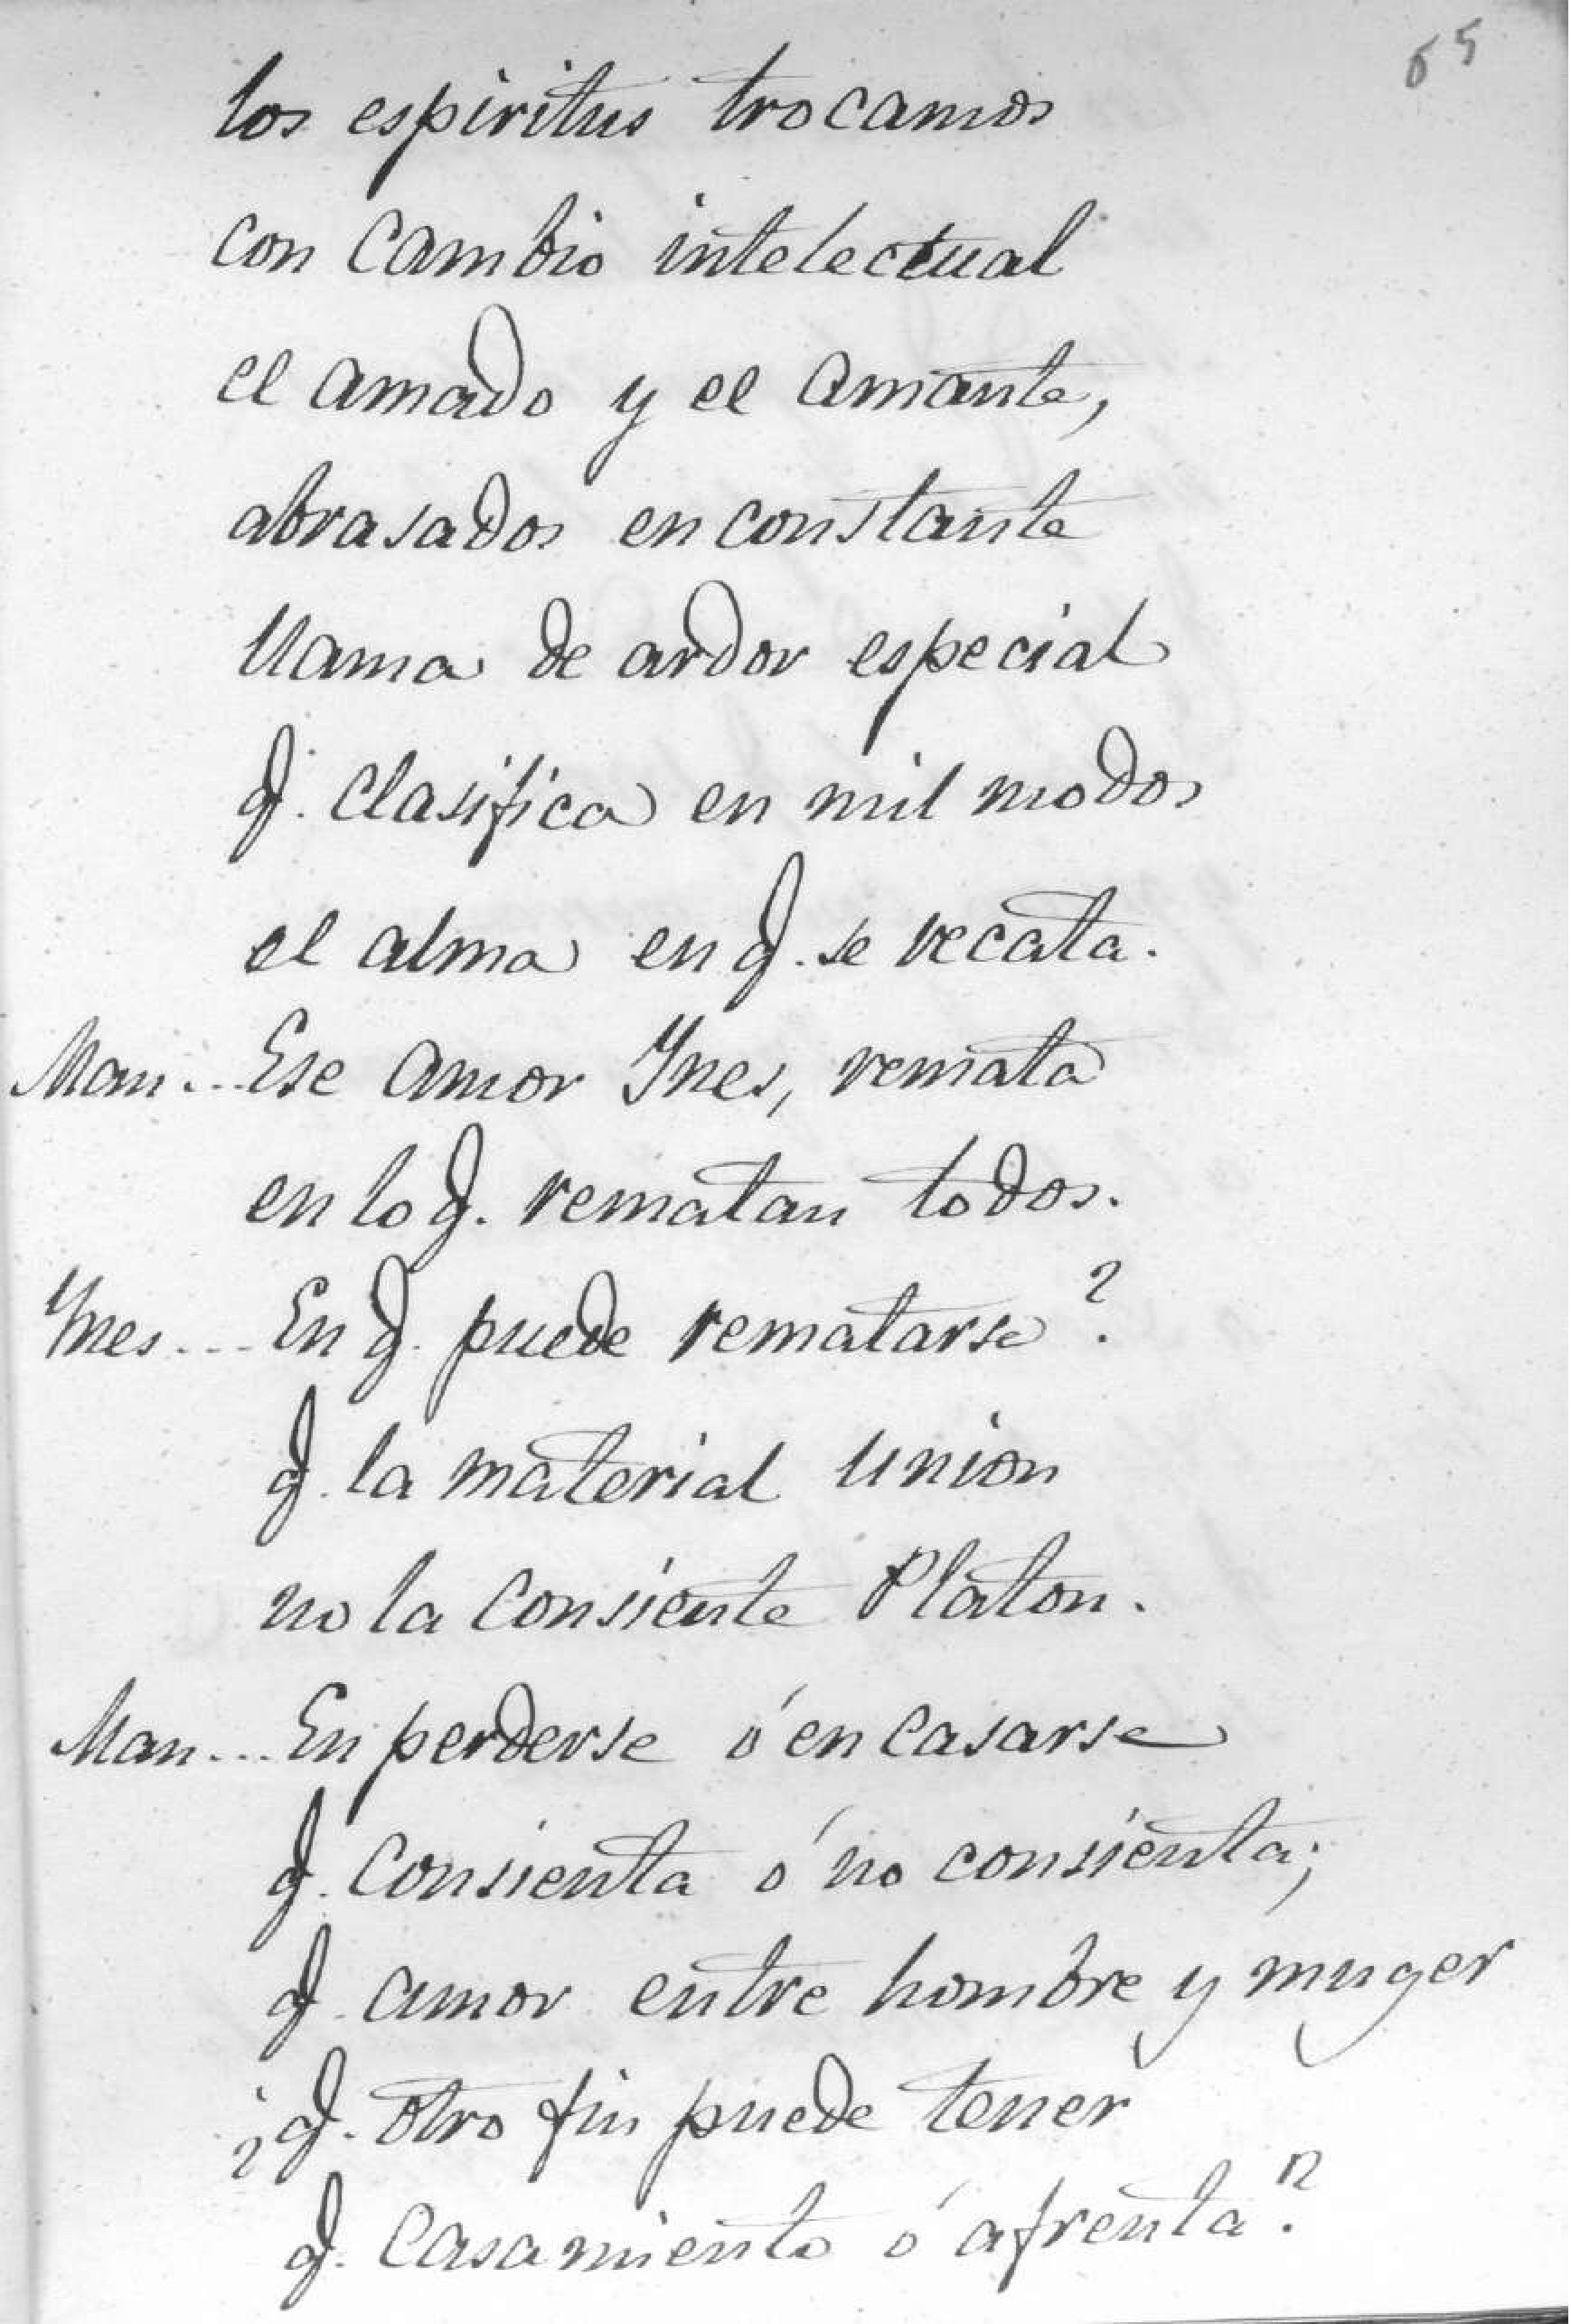 65
los espiritus trocamos
con cambio intelectual
el amado y el amante,
abrasados en constante
llama de ardor especial
q. clasifica en mil modos
el alma en q. se recata.
Man... Ese amor Ynes, remata
en lo q. rematan todos.
Ynes... En q. puede rematarse?
q. la material union
no la consiente Platon.
Man... En perderse ó en casarse
q. consienta ó no consienta;
q. amor entre hombre y muger
¿q. otro fin puede tener
q. casamiento ó afrenta?